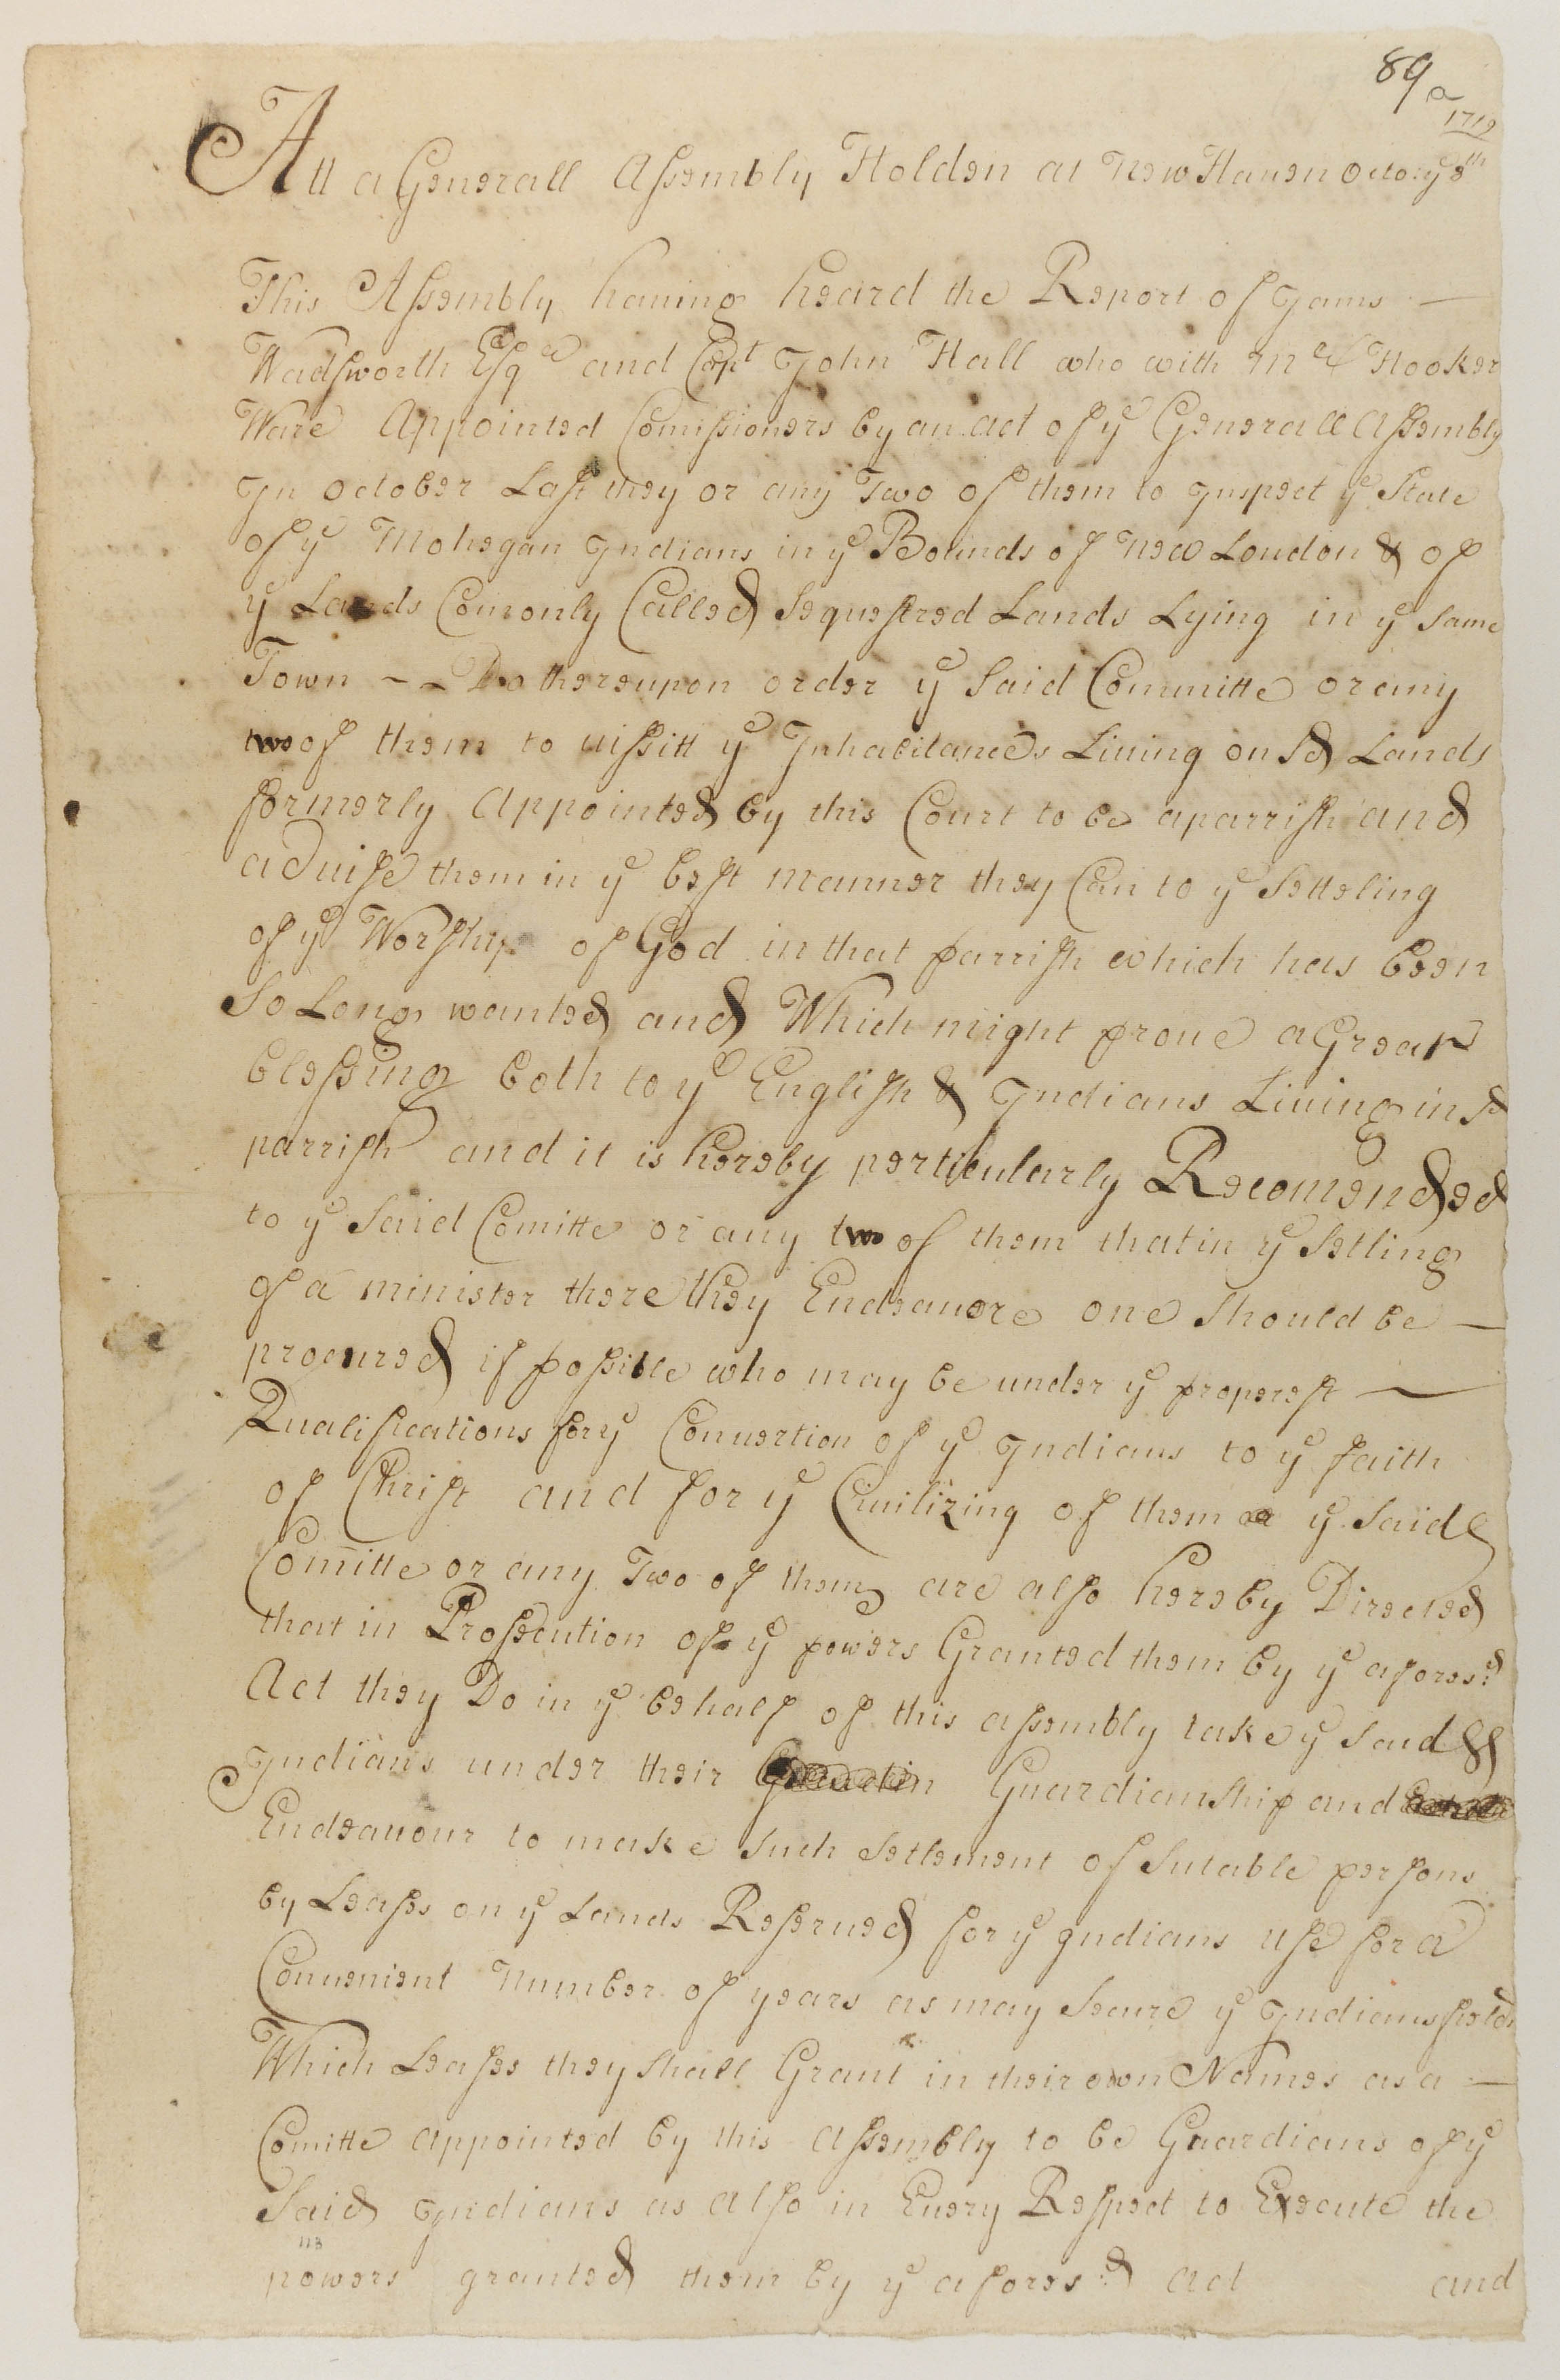 89
a
1719
Att a Generall Assembly Holden at New Hauen Octo: ye 8th
This Assembly hauing heard the Report of Jams —
Wadsworth Esqr and Capt John Hall who with mr Hooker
Ware Appointed Comissioners by an act of ye Generall Assembly
In October Last they or any Two of them to Inspect ye State
of ye Mohegan Indians in ye Bounds of New London & of
ye Lands Comonly Called Sequestred Lands Lying in ye same
Town -- Do thereupon order ye Said Committe or any
two of them to uissitt ye Inhabitances Liuing on sd Lands
formerly Appointed by this Court to be a parrish and
aduise them in ye best manner they Can to ye Setteling
of ye Worship of God in that parrish which has been
So Long wanted and Which might proue a Great
blessing both to ye English & Indians Liuing in sd
parrish and it is hereby perticularly Recomended
to ye Said Comitte or any two of them that in ye Setling
of a minister there they Endeauore one should be —
procured if possible who may be under ye properest —
Qualifications for ye Conuertion of ye Indians to ye faith
of Christ and for ye Ciuilizing of them ye Said
Comitte or any Two of them are also hereby Directed
that in Prosecution of ye powers Granted them by ye aforesd
Act they Do in ye behalf of this assembly take ye Said
Indians under their Guardianship and
Endeauour to make Such Setlement of Sutable persons
by Leases on ye Lands Reserued for ye Indians use for a
Conuenient Number of years as may Secure ye Indians field
Which Leases they shall Grant in their own Names as a —
Comitte appointed by this Assembly to be Guardians of ye
Said Indians as also in Euery Respect to Execute the
powers granted them by ye aforesd act and